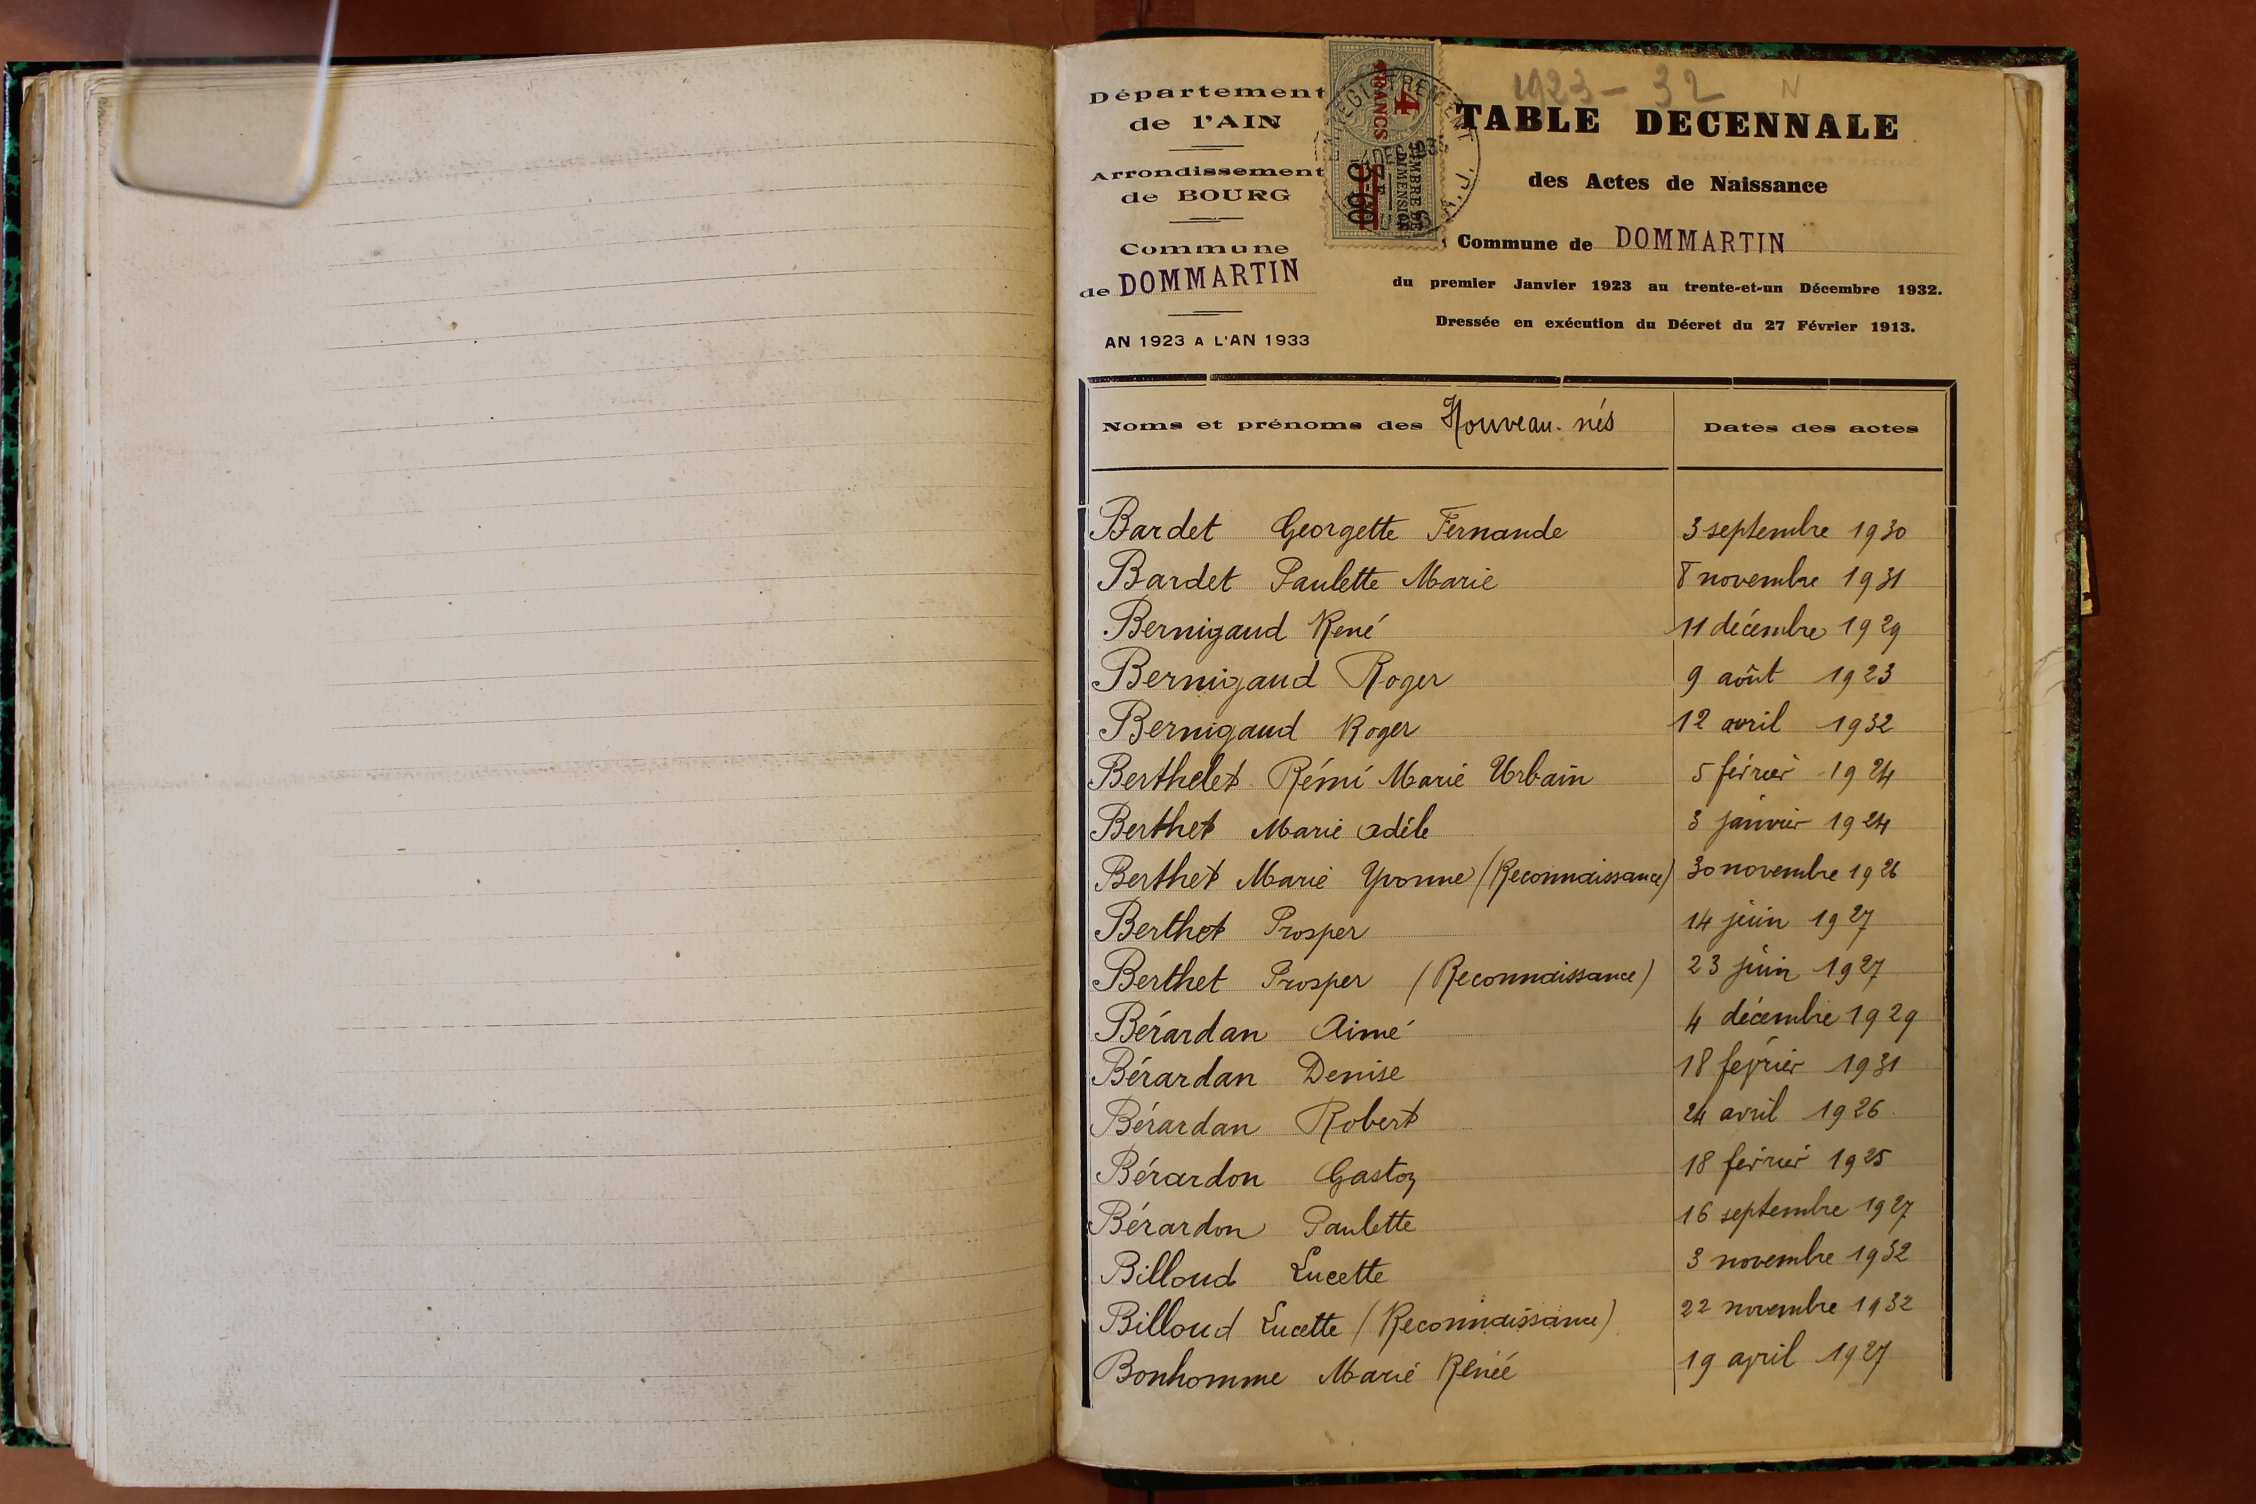 Département
de l'AIN
Arrondissement
de BOURG
Commune
de DOMMARTIN
AN 1923 A L'AN 1933
4
FRANCS
TIMBRE DE
DIMENSION
1923 - 32 N
TABLE DECENNALE
des Actes de Naissance
Commune de DOMMARTIN
du premier Janvier 1923 au trente-et-un Décembre 1932.
Dressée en exécution du Décret du 27 Février 1913.
Noms et prénoms des Nouveau-nés Dates des actes
Bardet Georgette Fernande 3 septembre 1930
Bardet Paulette Marie 8 novembre 1931
Bernigaud René 11 décembre 1929
Bernigaud Roger 9 août 1923
Bernigaud Roger 12 avril 1932
Berthelet Rémi Marie Urbain 5 février 1924
Berthet Marie Adèle 3 janvier 1924
Berthet Marie Yvonne (Reconnaissance) 30 novembre 1926
Berthet Prosper 14 juin 1927
Berthet Prosper (Reconnaissance) 23 juin 1927
Bérardan Aimé 4 décembre 1929
Bérardan Denise 18 février 1931
Bérardan Robert 24 avril 1926
Bérardon Gaston 18 février 1925
Bérardon Paulette 16 septembre 1927
Billoud Lucette 3 novembre 1932
Billoud Lucette (Reconnaissance) 22 novembre 1932
Bonhomme Marie Renée 19 avril 1927